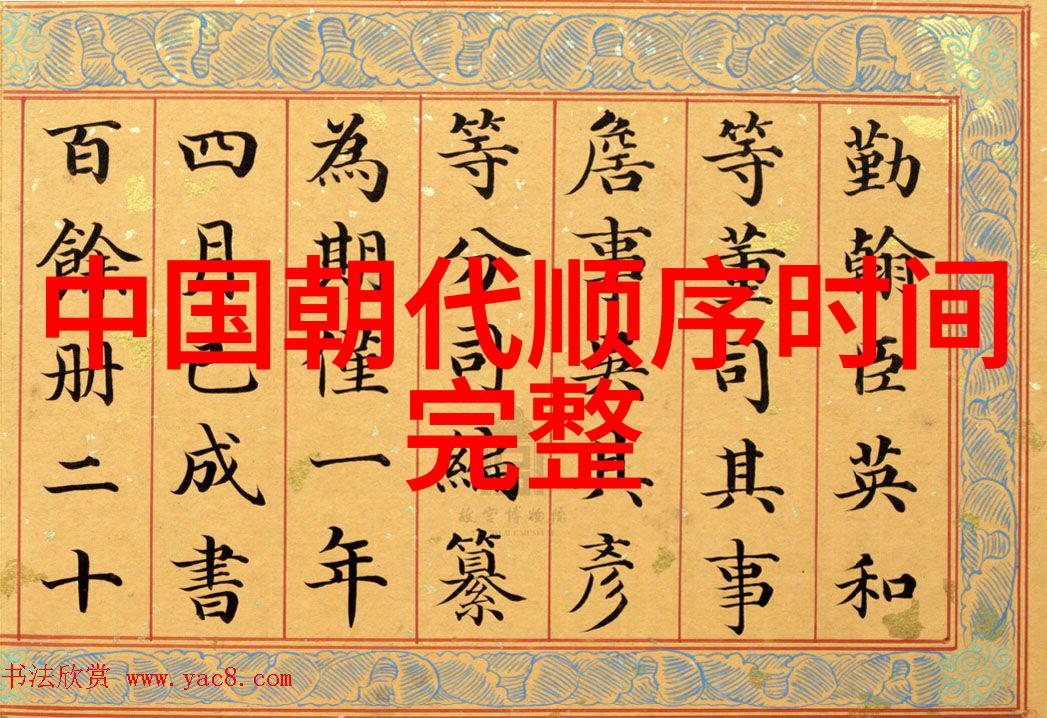 中国朝代顺序时间
完整
勤翰臣英和
等董司其事
詹事其彥
等分司編纂
為期僅一年
四月已成書
百餘册二十
故宫博物院
书法欣赏 www.yac8.com